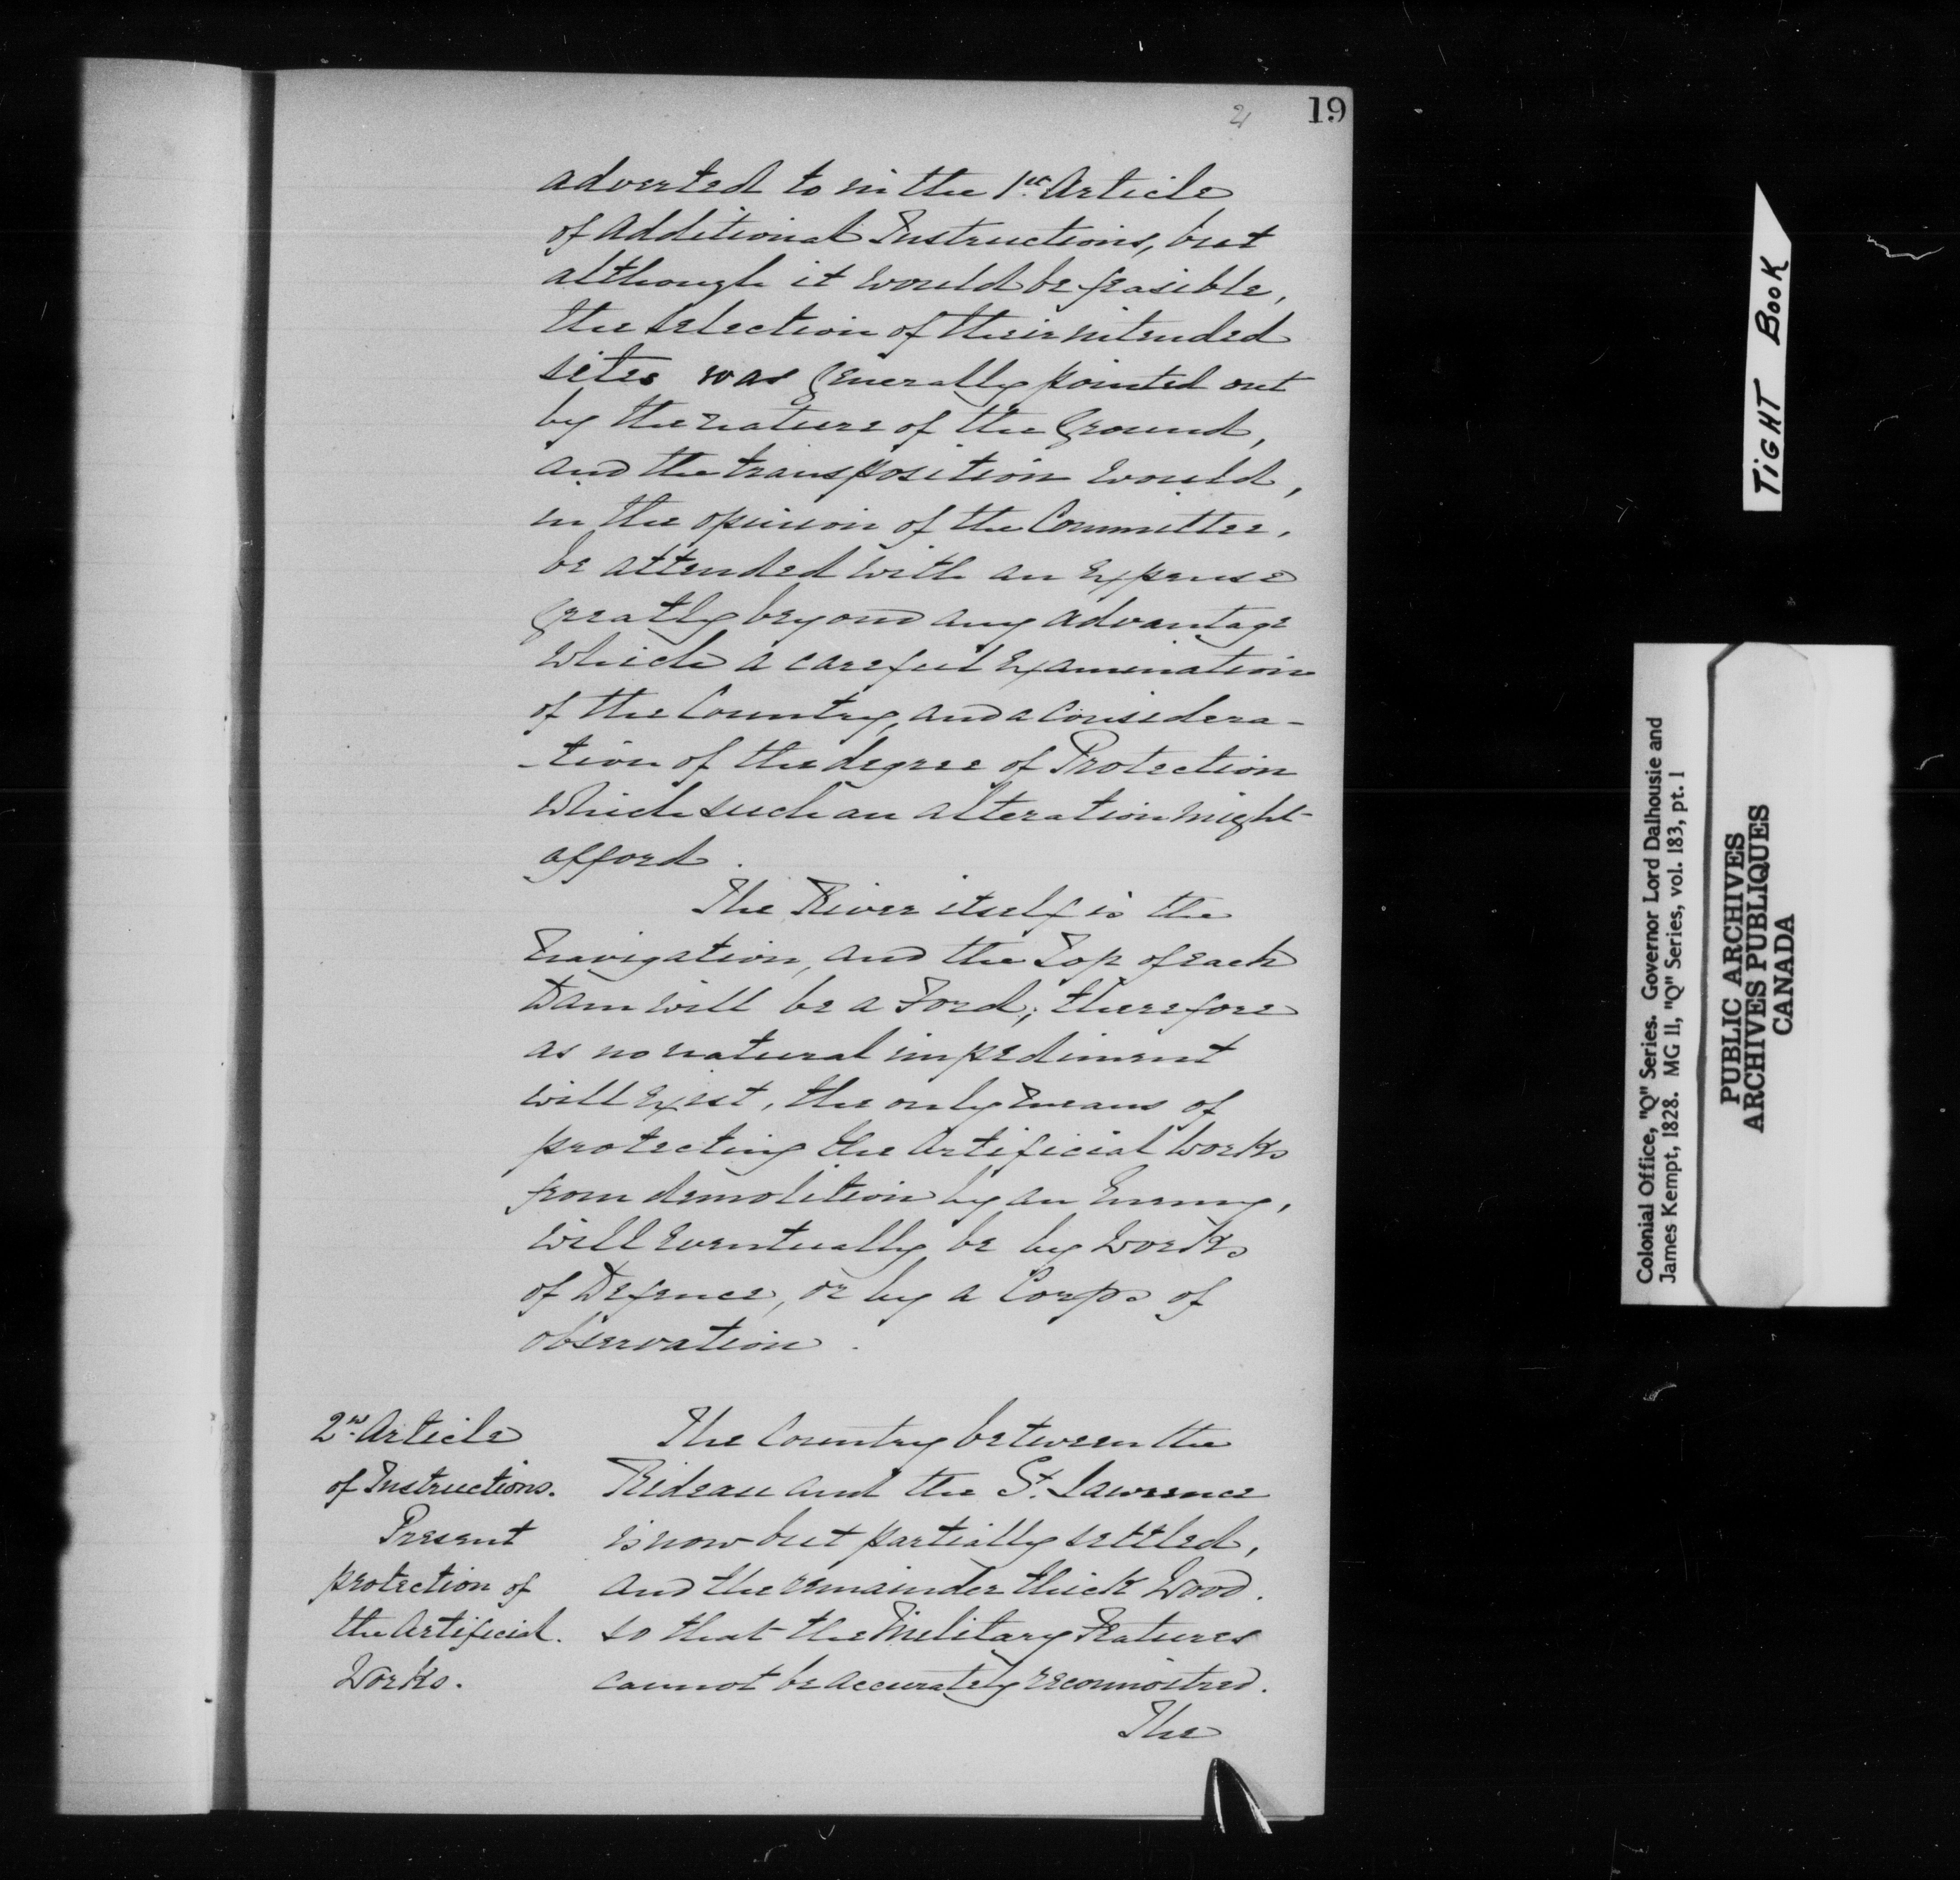 21 19
adverted to in the 1st Article
of Additional Instructions, but
although it would be feasible,
the selection of their intended
sites was generally pointed out
by the nature of the Ground,
and the transposition would,
in the opinion of the Committee,
be attended with an expense
greatly beyond any advantage
which a careful examination
of the Country, and a considera-
-tion of the degree of Protection
which such an alteration might
afford.
The River itself is the
Navigation, and the Top of each
Dam will be a Ford; therefore
as no natural impediment
will exist, the only means of
protecting the Artificial Works
from demolition by an Enemy,
will eventually be by Works
of Defence, or by a Corps of
observation.
2nd Article
of Instructions.
Present
protection of
the Artificial.
Works.
The Country between the
Rideau and the St. Lawrence
is now but partially settled,
and the remainder thick Wood.
so that the Military Features
cannot be accurately reconnoitred.
The
TIGHT BOOK
Colonial Office, "Q" Series. Governor Lord Dalhousie and
James Kempt, 1828. MG 11, "Q" Series, vol. 183, pt. 1
PUBLIC ARCHIVES
ARCHIVES PUBLIQUES
CANADA